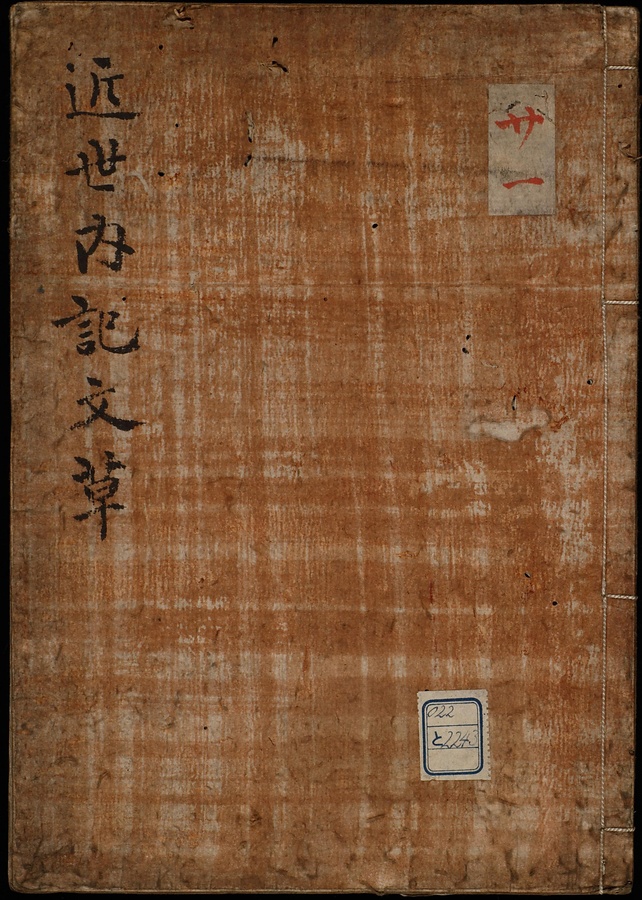 近世内記文草
廿一
022
と2243